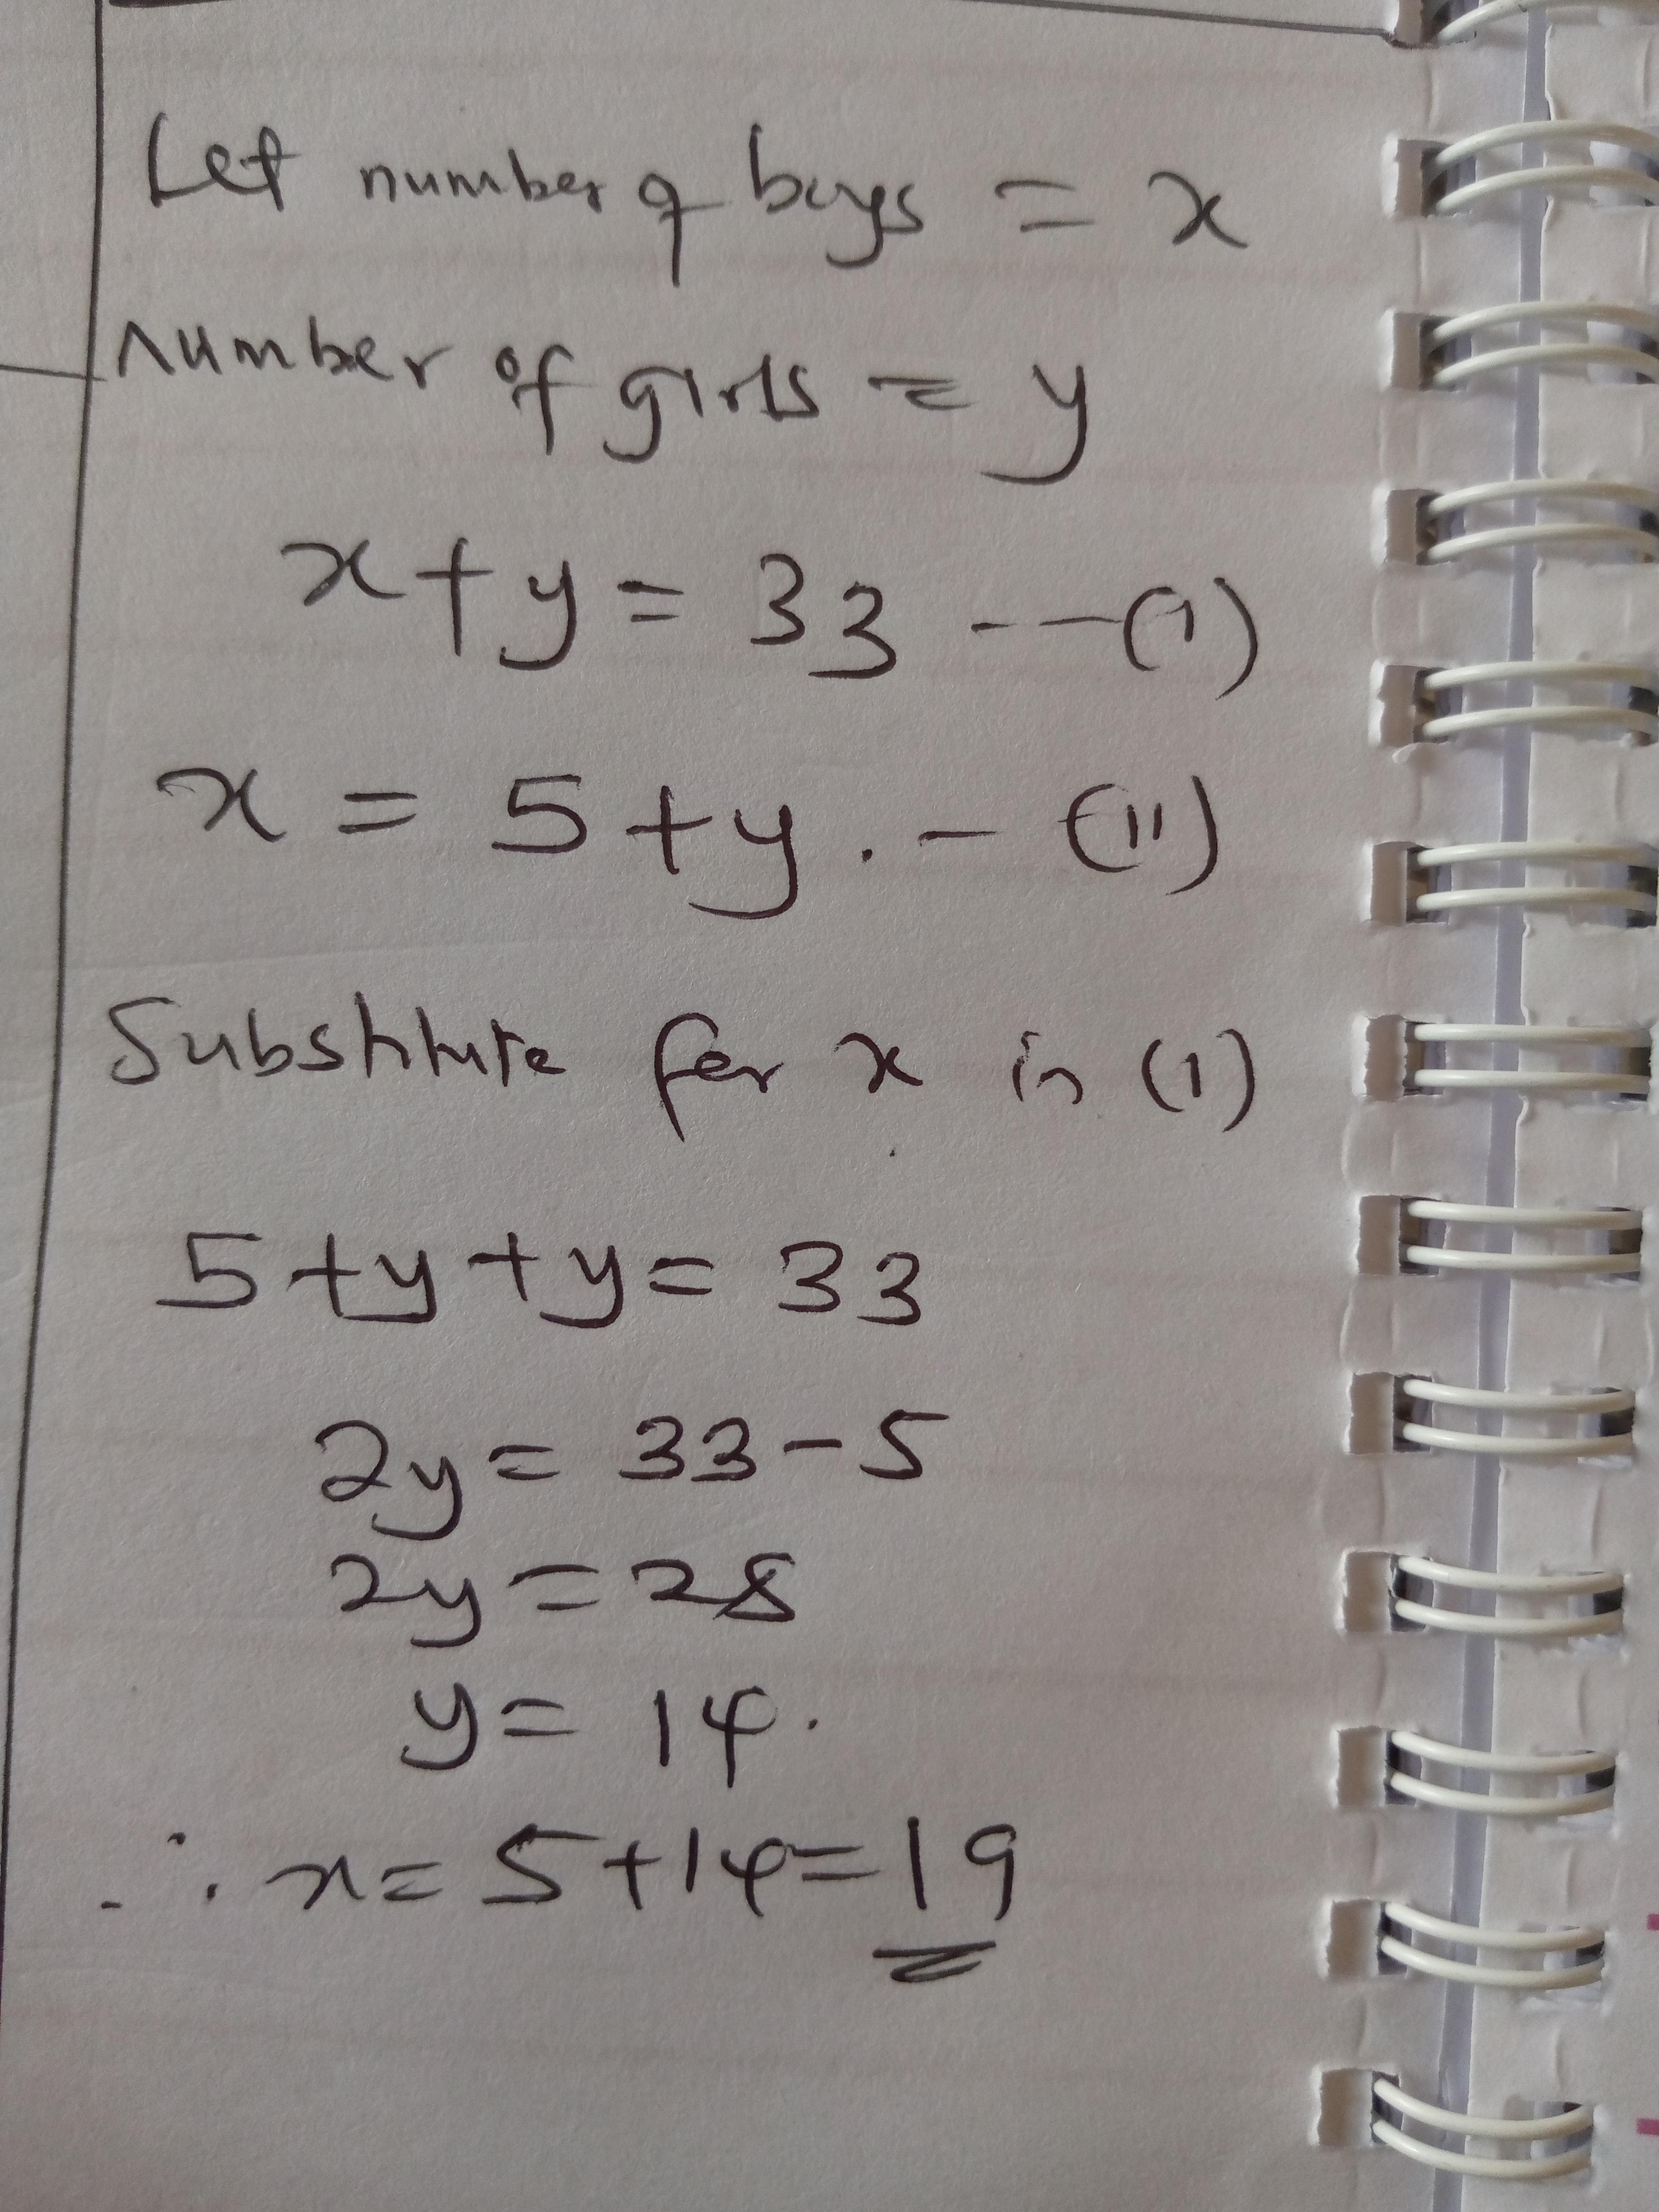 Let number of boys = x
number of girls = y
x + y = 33 --- (1)
x = 5 + y . - (11)
Substitute for x in (1)
5 + y + y = 33
2y = 33 - 5
2y = 28
y = 14.
∴ x = 5 + 14 = 19